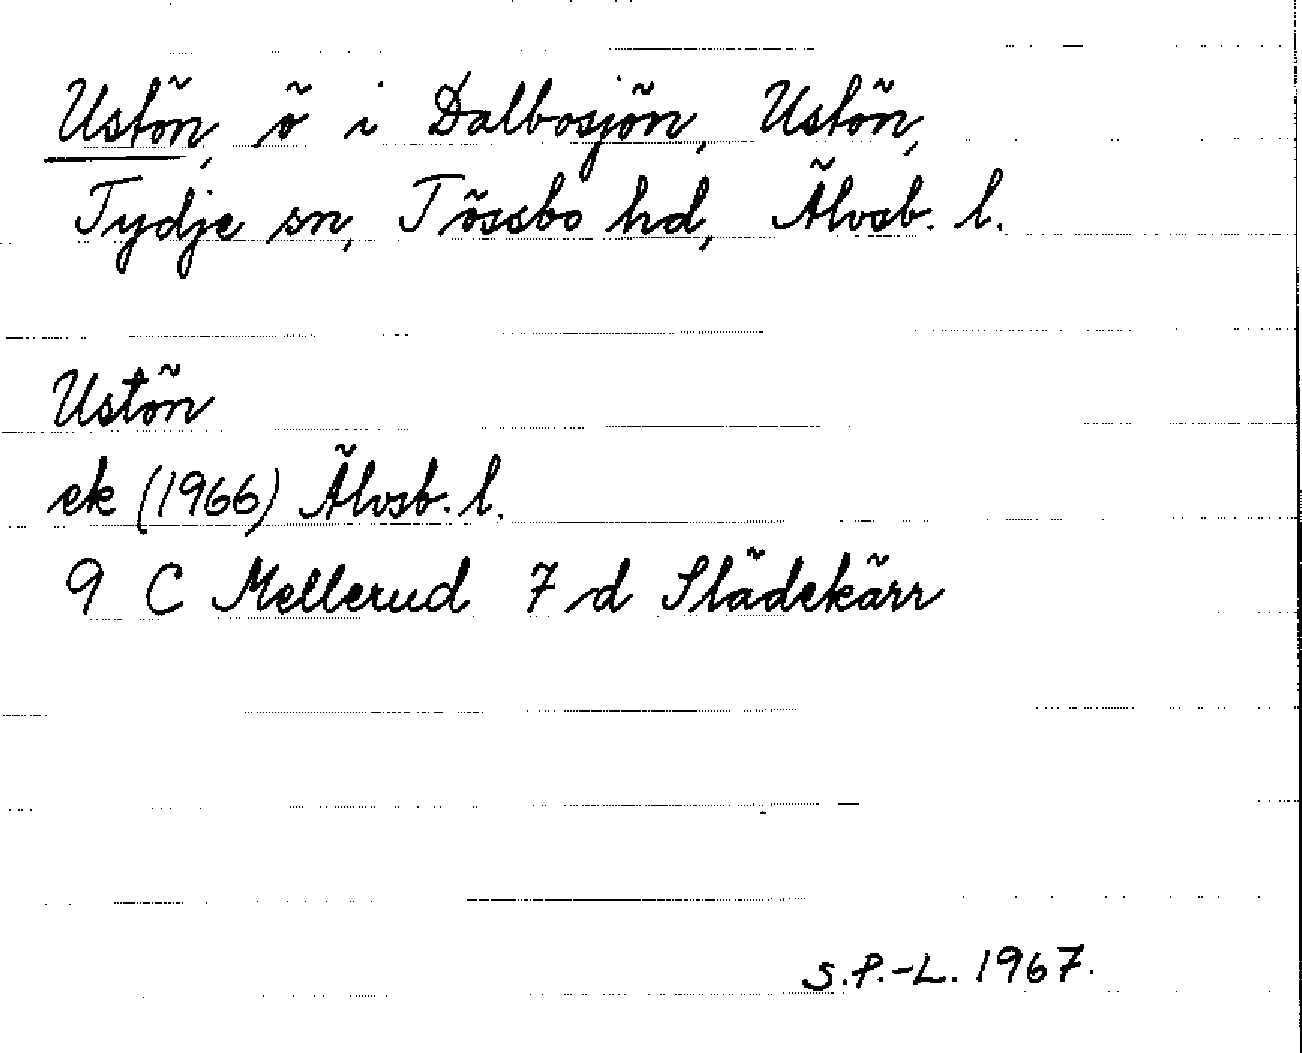 Ustön, ö i Dalbosjön, Ustön,
Tydje sn, Tössbo hd, Älvsb. l.
Ustön
ek (1966) Älvsb. l.
9 C Mellerud 7 d Slädekärr
S.P.-L. 1967.